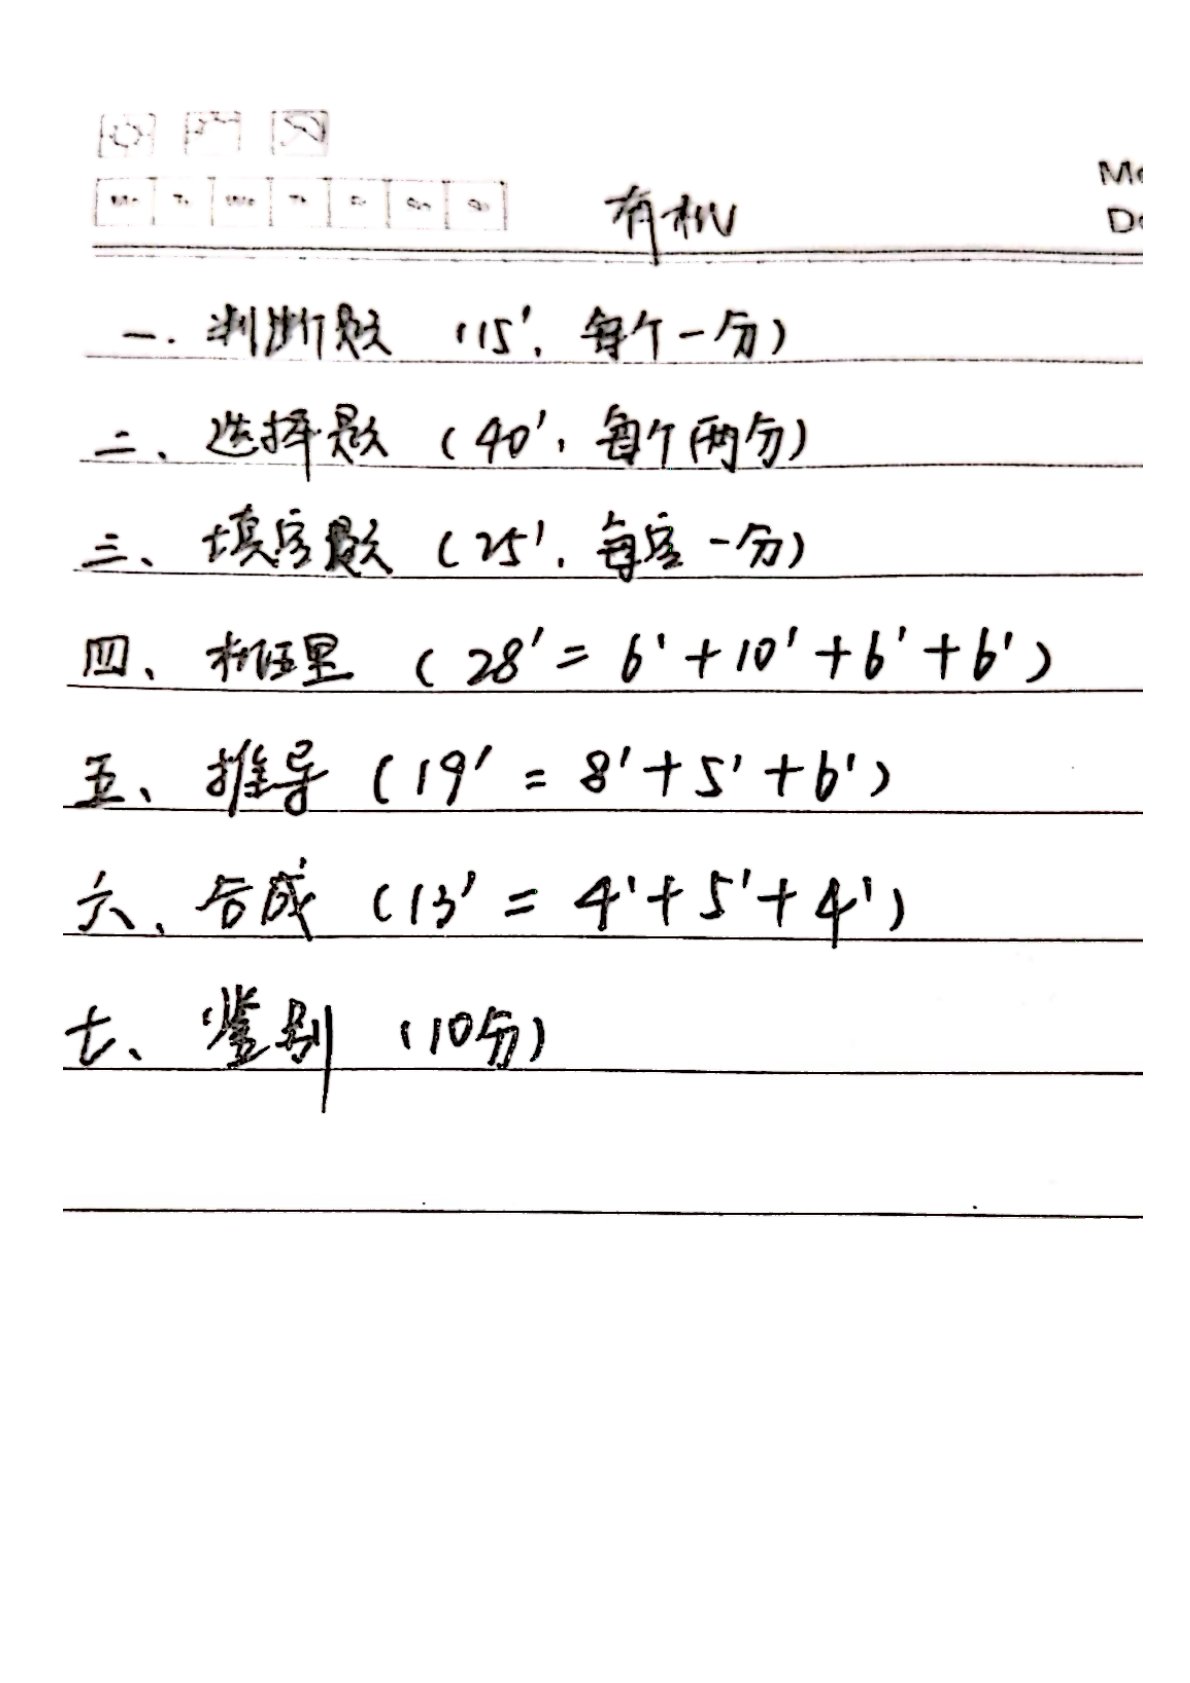 Mo Tu We Th Fr Sa Su
有机
一. 判断题 (15', 每个一分)
二、选择题 (40', 每个两分)
三、填空题 (25', 每空一分)
四、机理 (28' = 6' + 10' + 6' + 6')
五、推导 (19' = 8' + 5' + 6')
六、合成 (13' = 4' + 5' + 4')
七、鉴别 (10分)